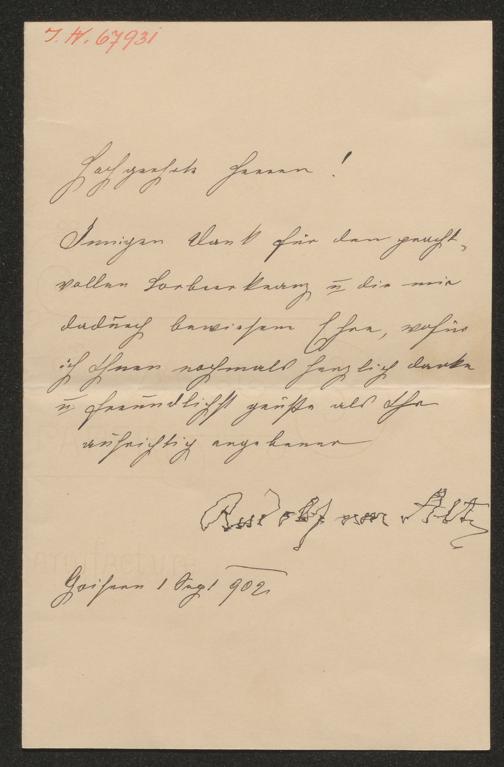 I. N. 67931
Hochgeehrte Herren!
Innigen Dank für den pracht-
vollen Lorbeerkranz u die mir
dadurch bewiesene Ehre, wofür
ich Ihnen nochmals herzlich danke
u freundlichst grüße als Ihr
aufrichtig ergebener
Rudolf von Alt
Goisern 1 Sept 902